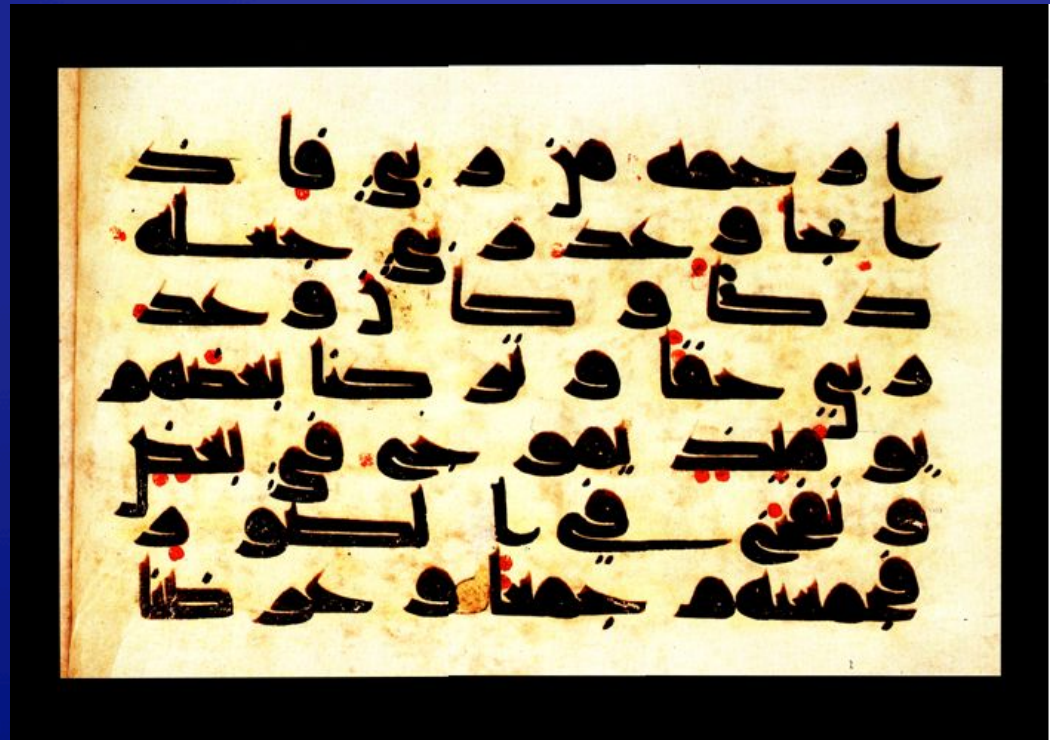 ا رحمه من ربي فاذ
ا جا وعد ربي جعله
دكا وكان وعد
ربي حقا وتركنا بعضهم
يومئذ يموج في بعض
ونفخ في الصور
فجمعنهم جمعا وعرضنا